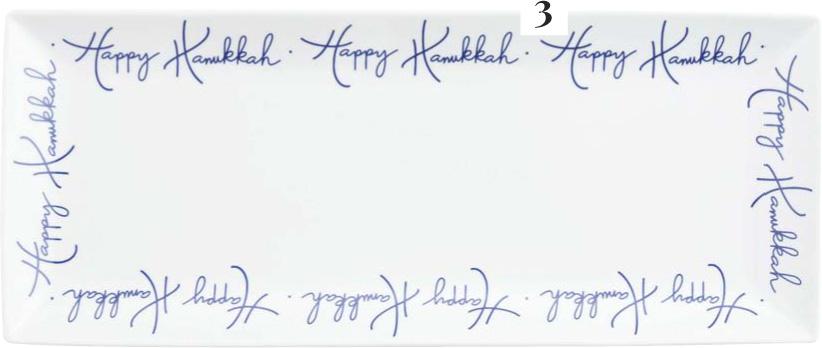 3
Happy Hanukkah · Happy Hanukkah · Happy Hanukkah ·
Happy Hanukkah ·
Happy Hanukkah · Happy Hanukkah · Happy Hanukkah ·
Happy Hanukkah ·